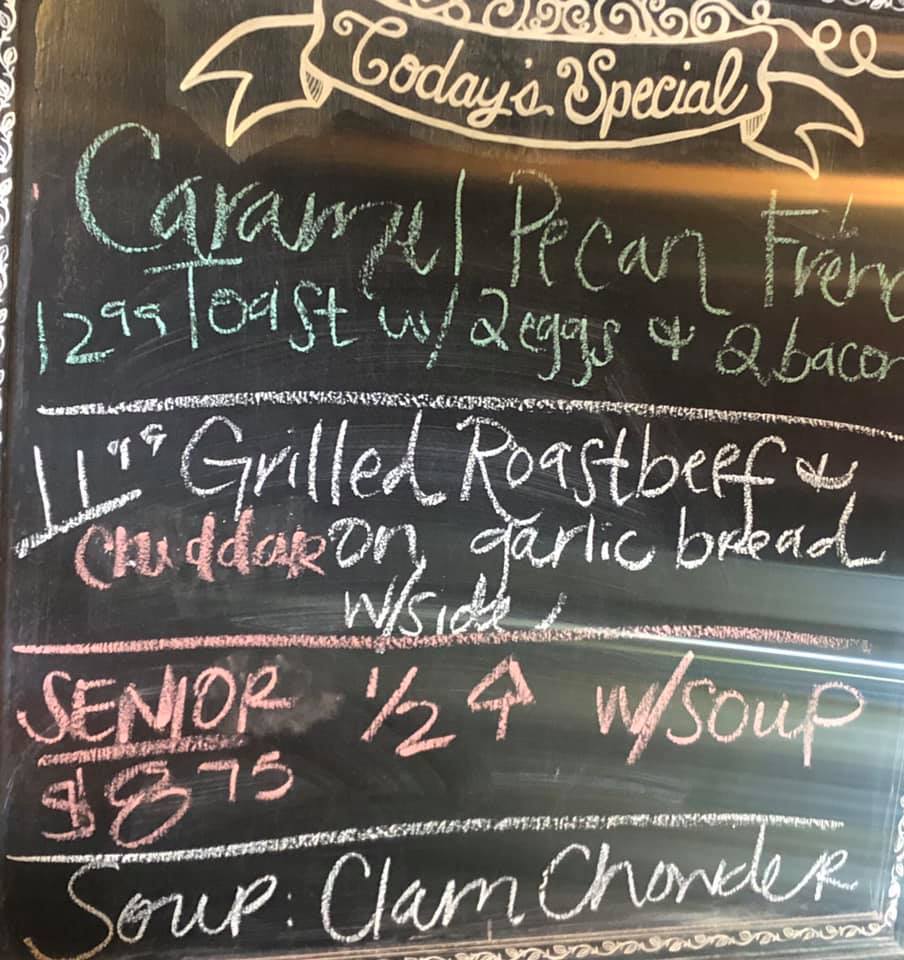 Today's Special
Caramel Pecan Fren
12 99 Toast w/ 2 eggs & 2 bacon
11 99 Grilled Roastbeef &
Chuddar on garlic bread
w/side
SENIOR 1/2 ↑ w/soup
$8 75
Soup: Clam Chowder